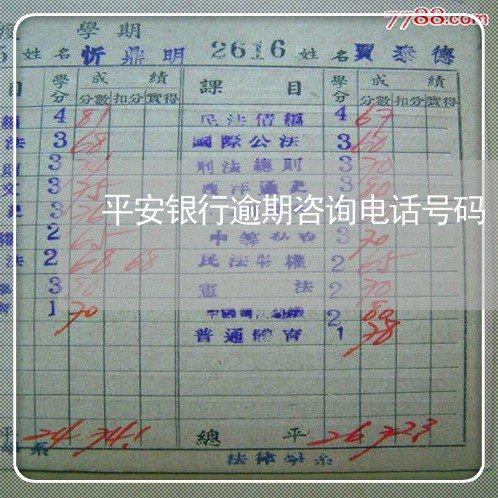 7788.com
學期
姓名 忻鼎明 2616 姓名 賈泰德
目 學分 成績 課目 學分 成績
分數 扣分 實得 分數 扣分 實得
4 81 民法債編 4 67
法 3 68 國際公法 3 60
3 刑法總則 3 70
文 3 75 西洋通史 3
平安银行逾期咨询电话号码
2 65 3 70
法 2 68 68 民法物權 2 65
3 憲法 2 70
1 70 2 80
普通體育 1 78
平 24 74.1 總平 26 72.3
系 法律學系